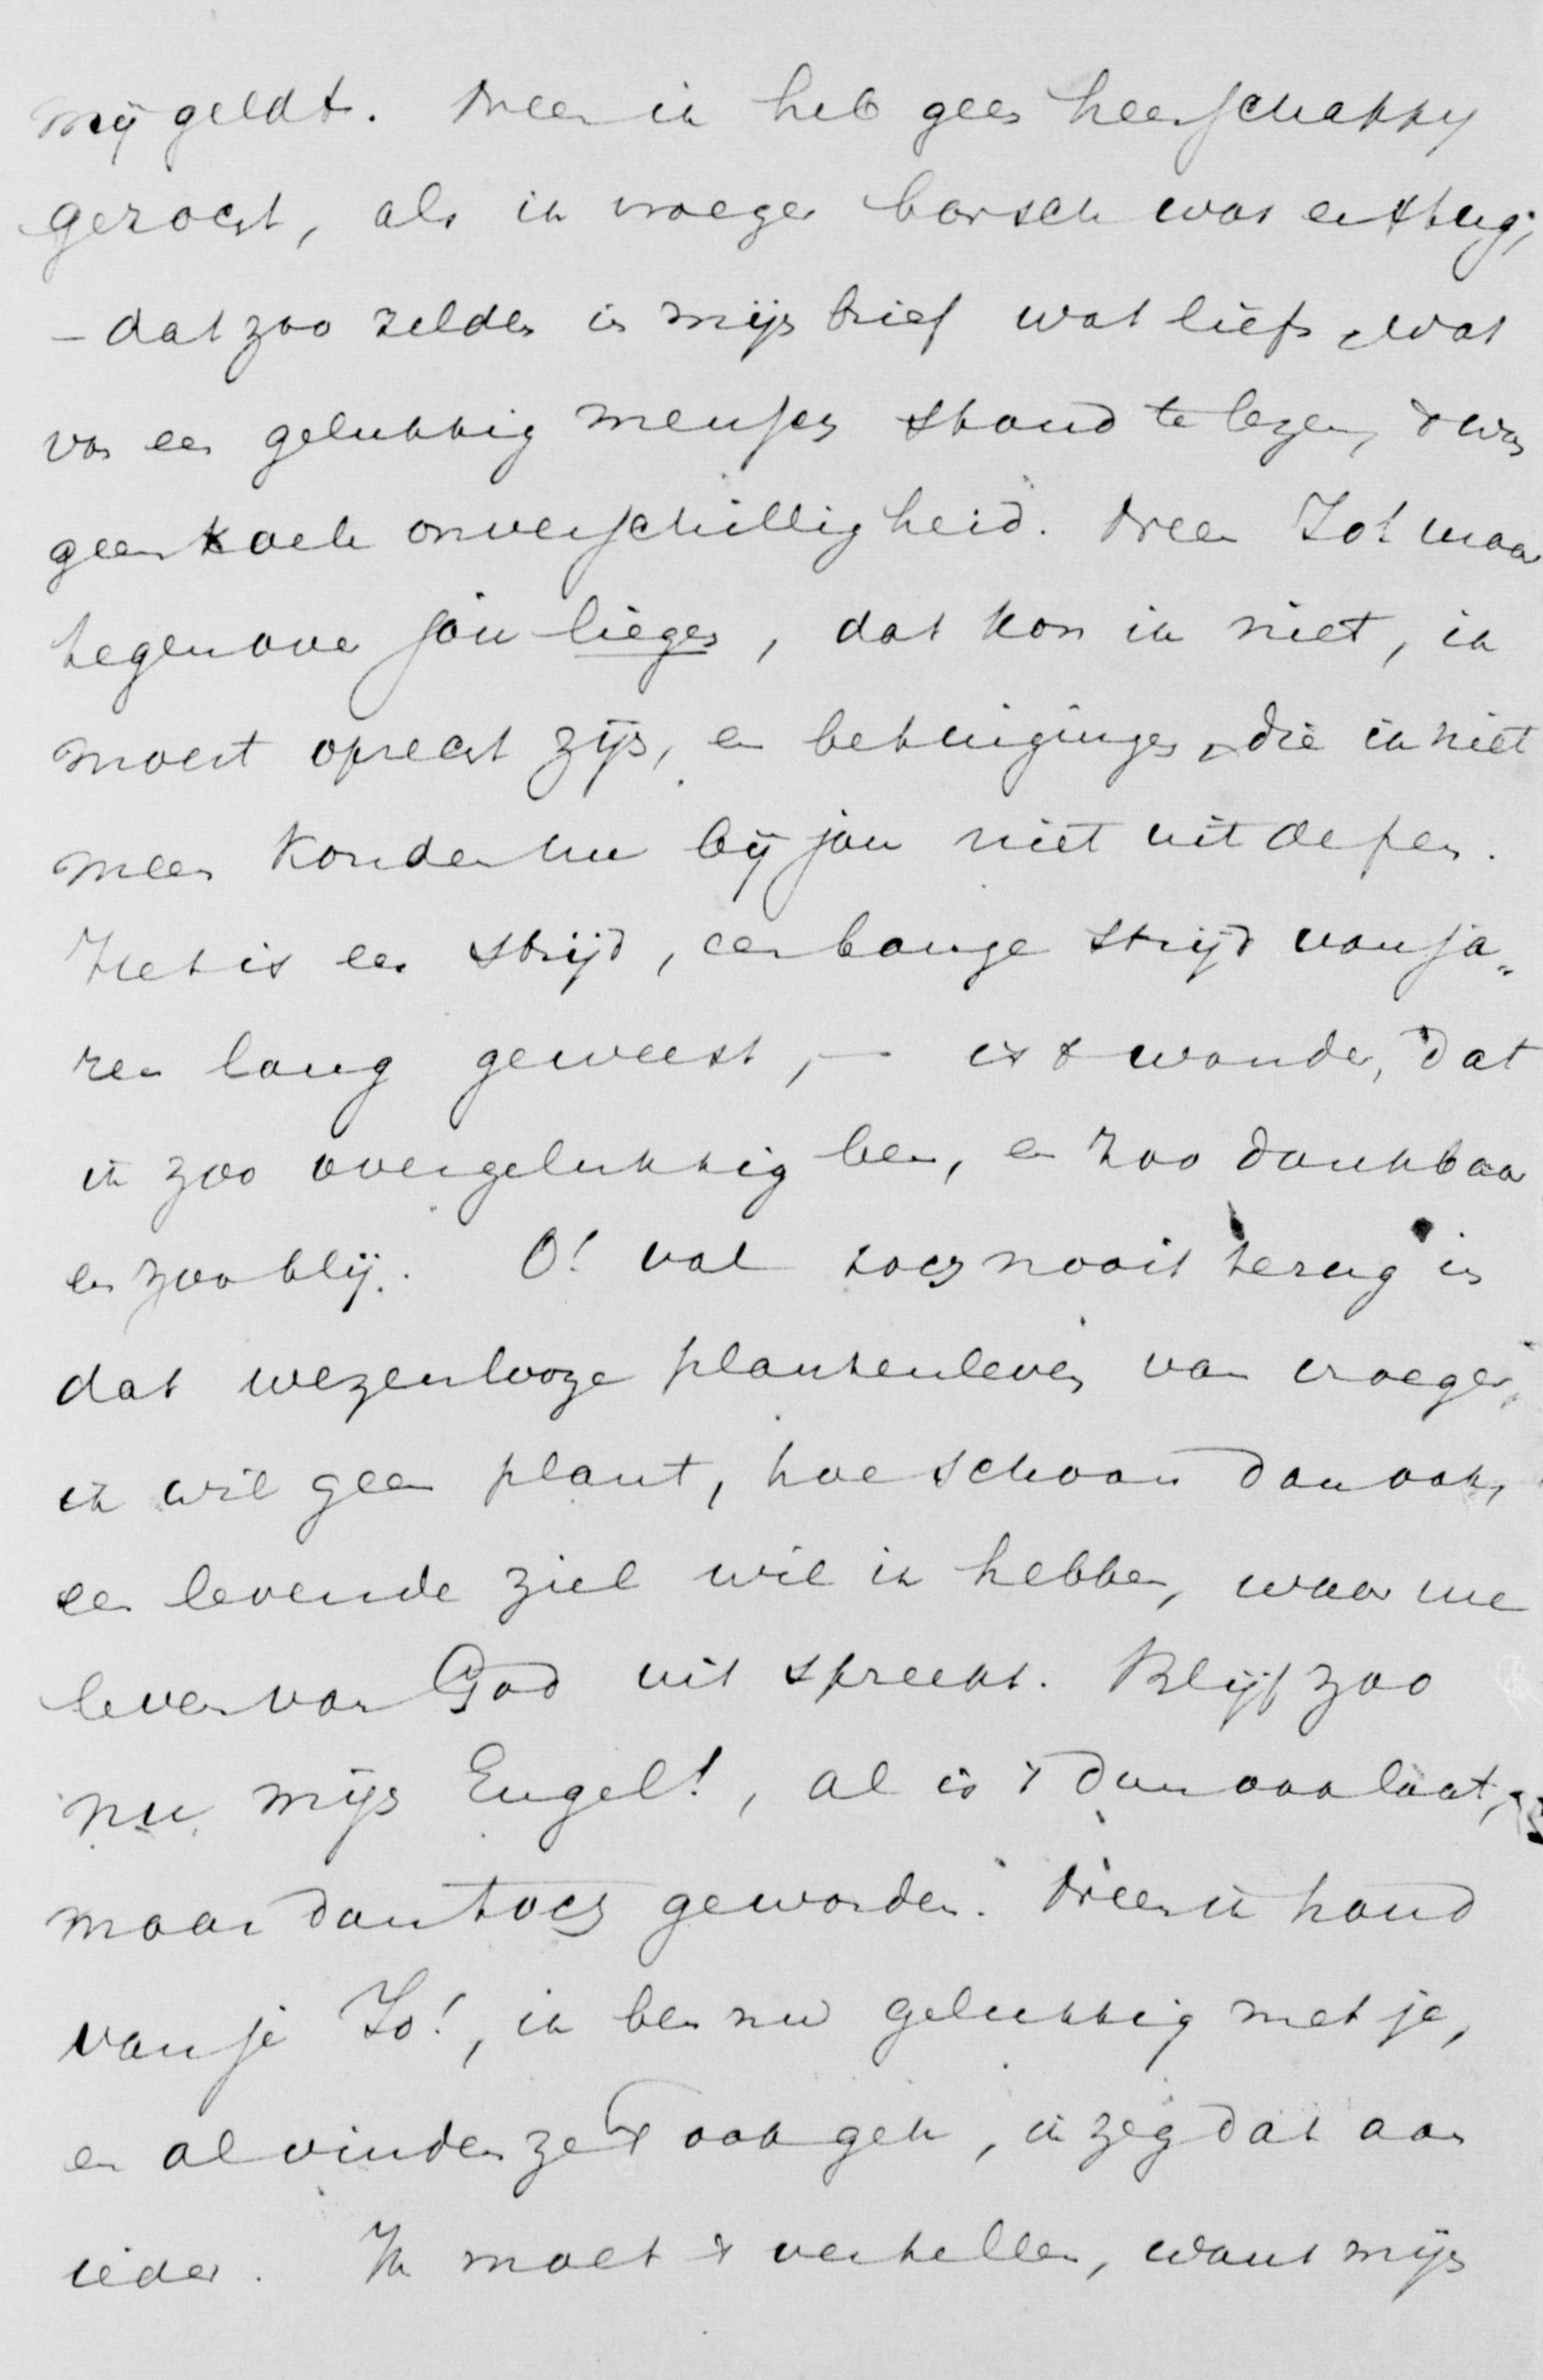 mij geldt. Neen ik heb geen heerschappy
gezocht, als ik vroeger barsch was en stug,
– dat zoo zelden in mijn brief wat liefs, wat
van een gelukkig mensch stond te lezen, 't was
geen koele onverschilligheid. Neen Jo! maar
tegenover jou liegen, dat kon ik niet, ik
moest oprecht zijn, en betuigingen, die ik niet
meen konden nu bij jou niet uit de pen.
Het is een strijd, een bange strijd van ja„
ren lang geweest, – is 't wonder, dat
ik zoo overgelukkig ben, en zoo dankbaar
en zoo blij. O! val toch nooit terug in
dat wezenlooze plantenleven van vroeger,
ik wil geen plant, hoe schoon dan ook,
een levende ziel wil ik hebben, waar me
leven van God uit spreekt. Blijf zoo
nu mijn Engel!, al is 't dan ook laat,
maar dan toch geworden. Neen ik houd
van je Jo!, ik ben nu gelukkig met je,
en al vinden ze 't ook gek, ik zeg dat aan
ieder. Ik moet 't vertellen, want mijn